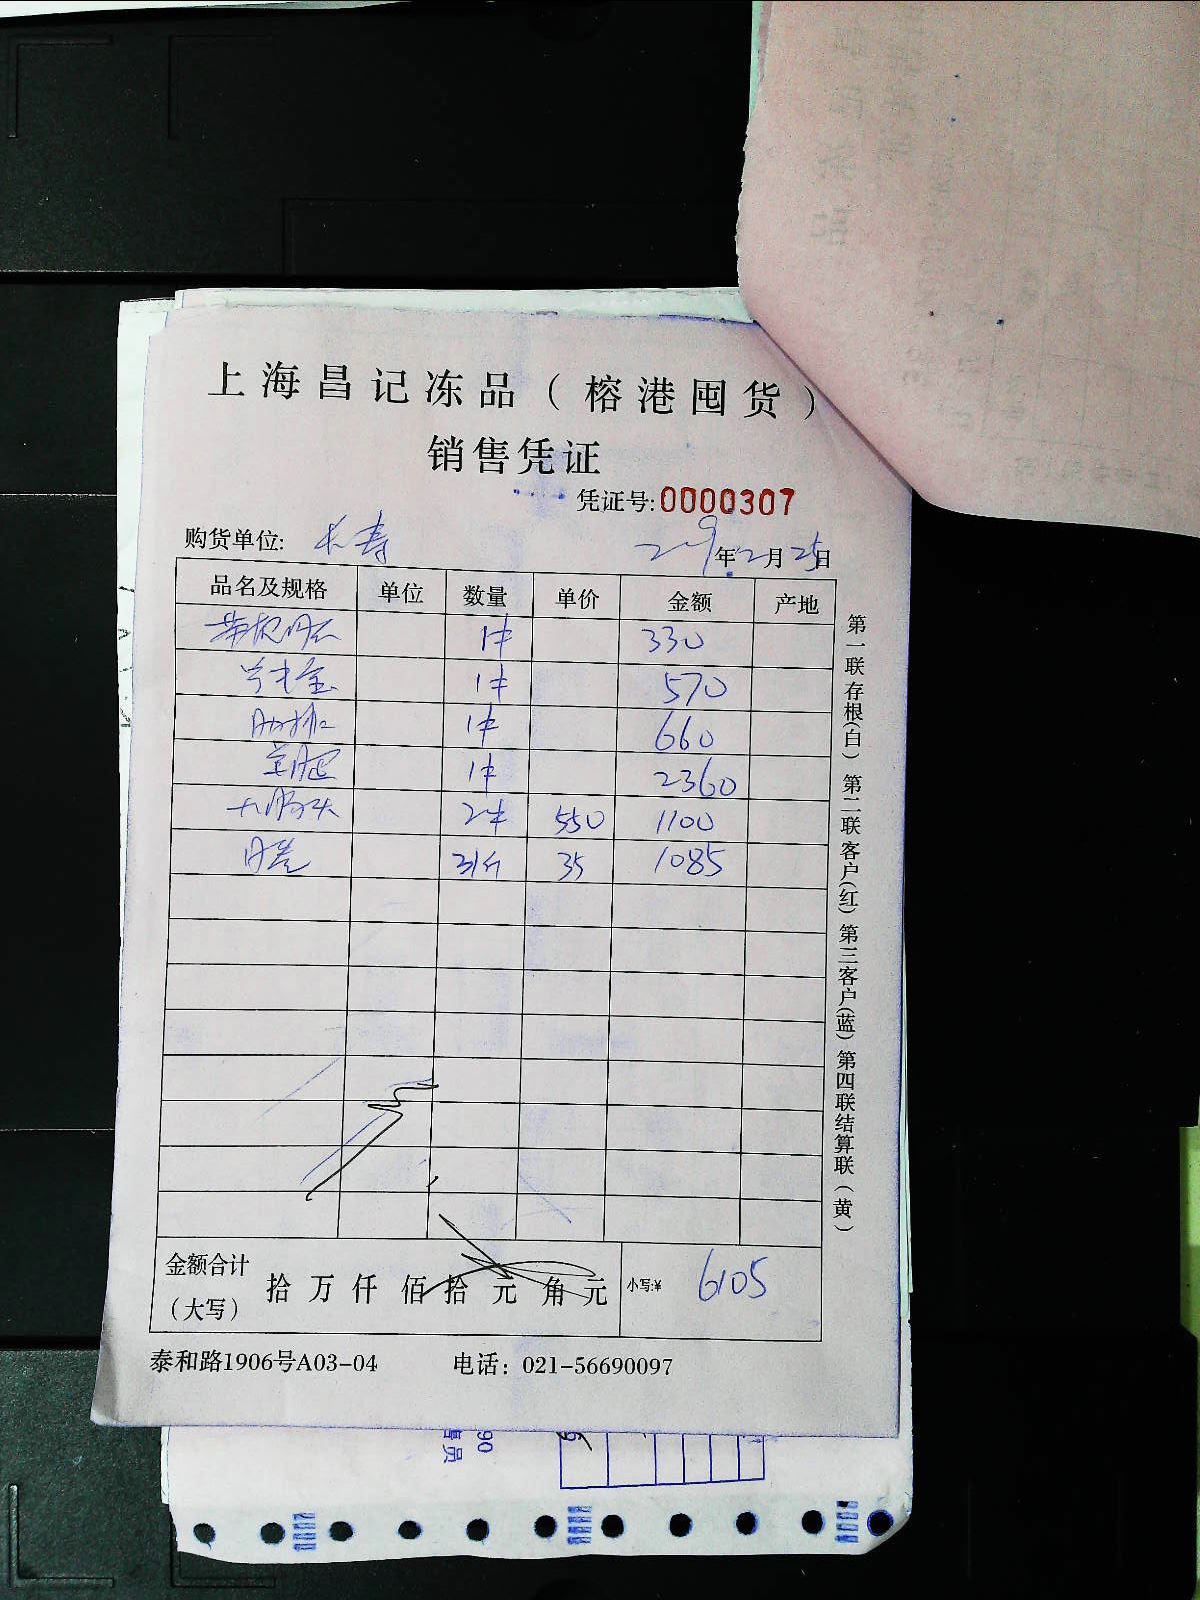 上海昌记冻品（榕港囤货）
销售凭证
凭证号:0000307
购货单位: 长寿 219年2月25日
品名及规格 单位 数量 单价 金额 产地
1件 330
1件 570
1件 660
1件 2360
大肠头 2件 550 1100
31斤 35 1085
金额合计
（大写） 拾 万 仟 佰 拾 元 角 元 小写:¥ 6105
泰和路1906号A03-04 电话：021-56690097
第一联存根(白)第二联客户(红)第三客户(蓝)第四联结算联(黄)
90
售员